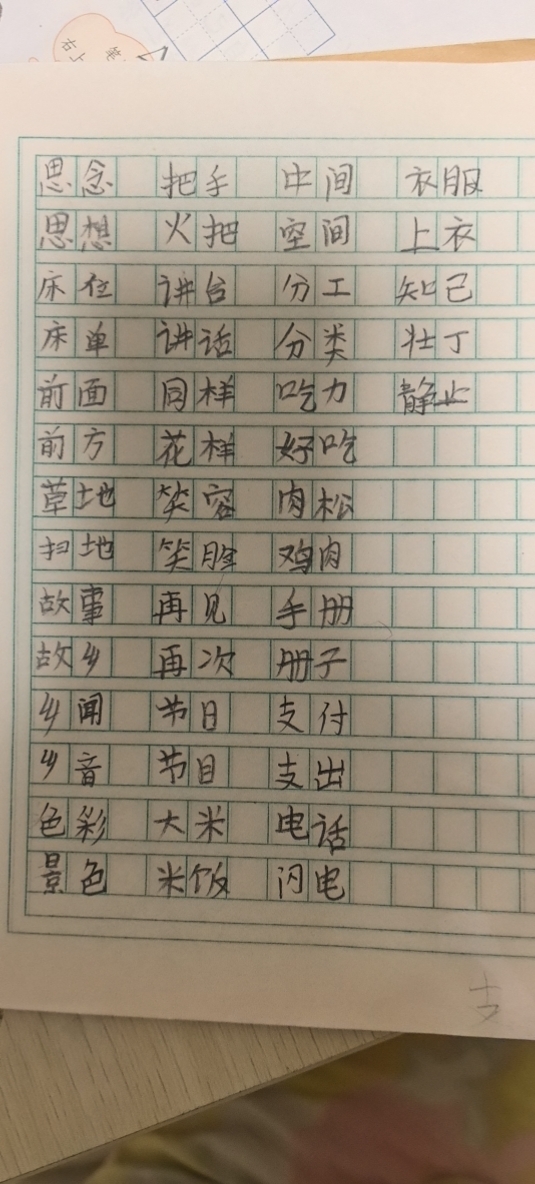 右上
思念 把手 中间 衣服
思想 火把 空间 上衣
床位 讲台 分工 知己
床单 讲话 分类 壮丁
前面 同样 吃力 静止
前方 花样 好吃
草地 笑容 肉松
扫地 笑脸 鸡肉
故事 再见 手册
故乡 再次 册子
乡闻 节日 支付
乡音 节目 支出
色彩 大米 电话
景色 米饭 闪电